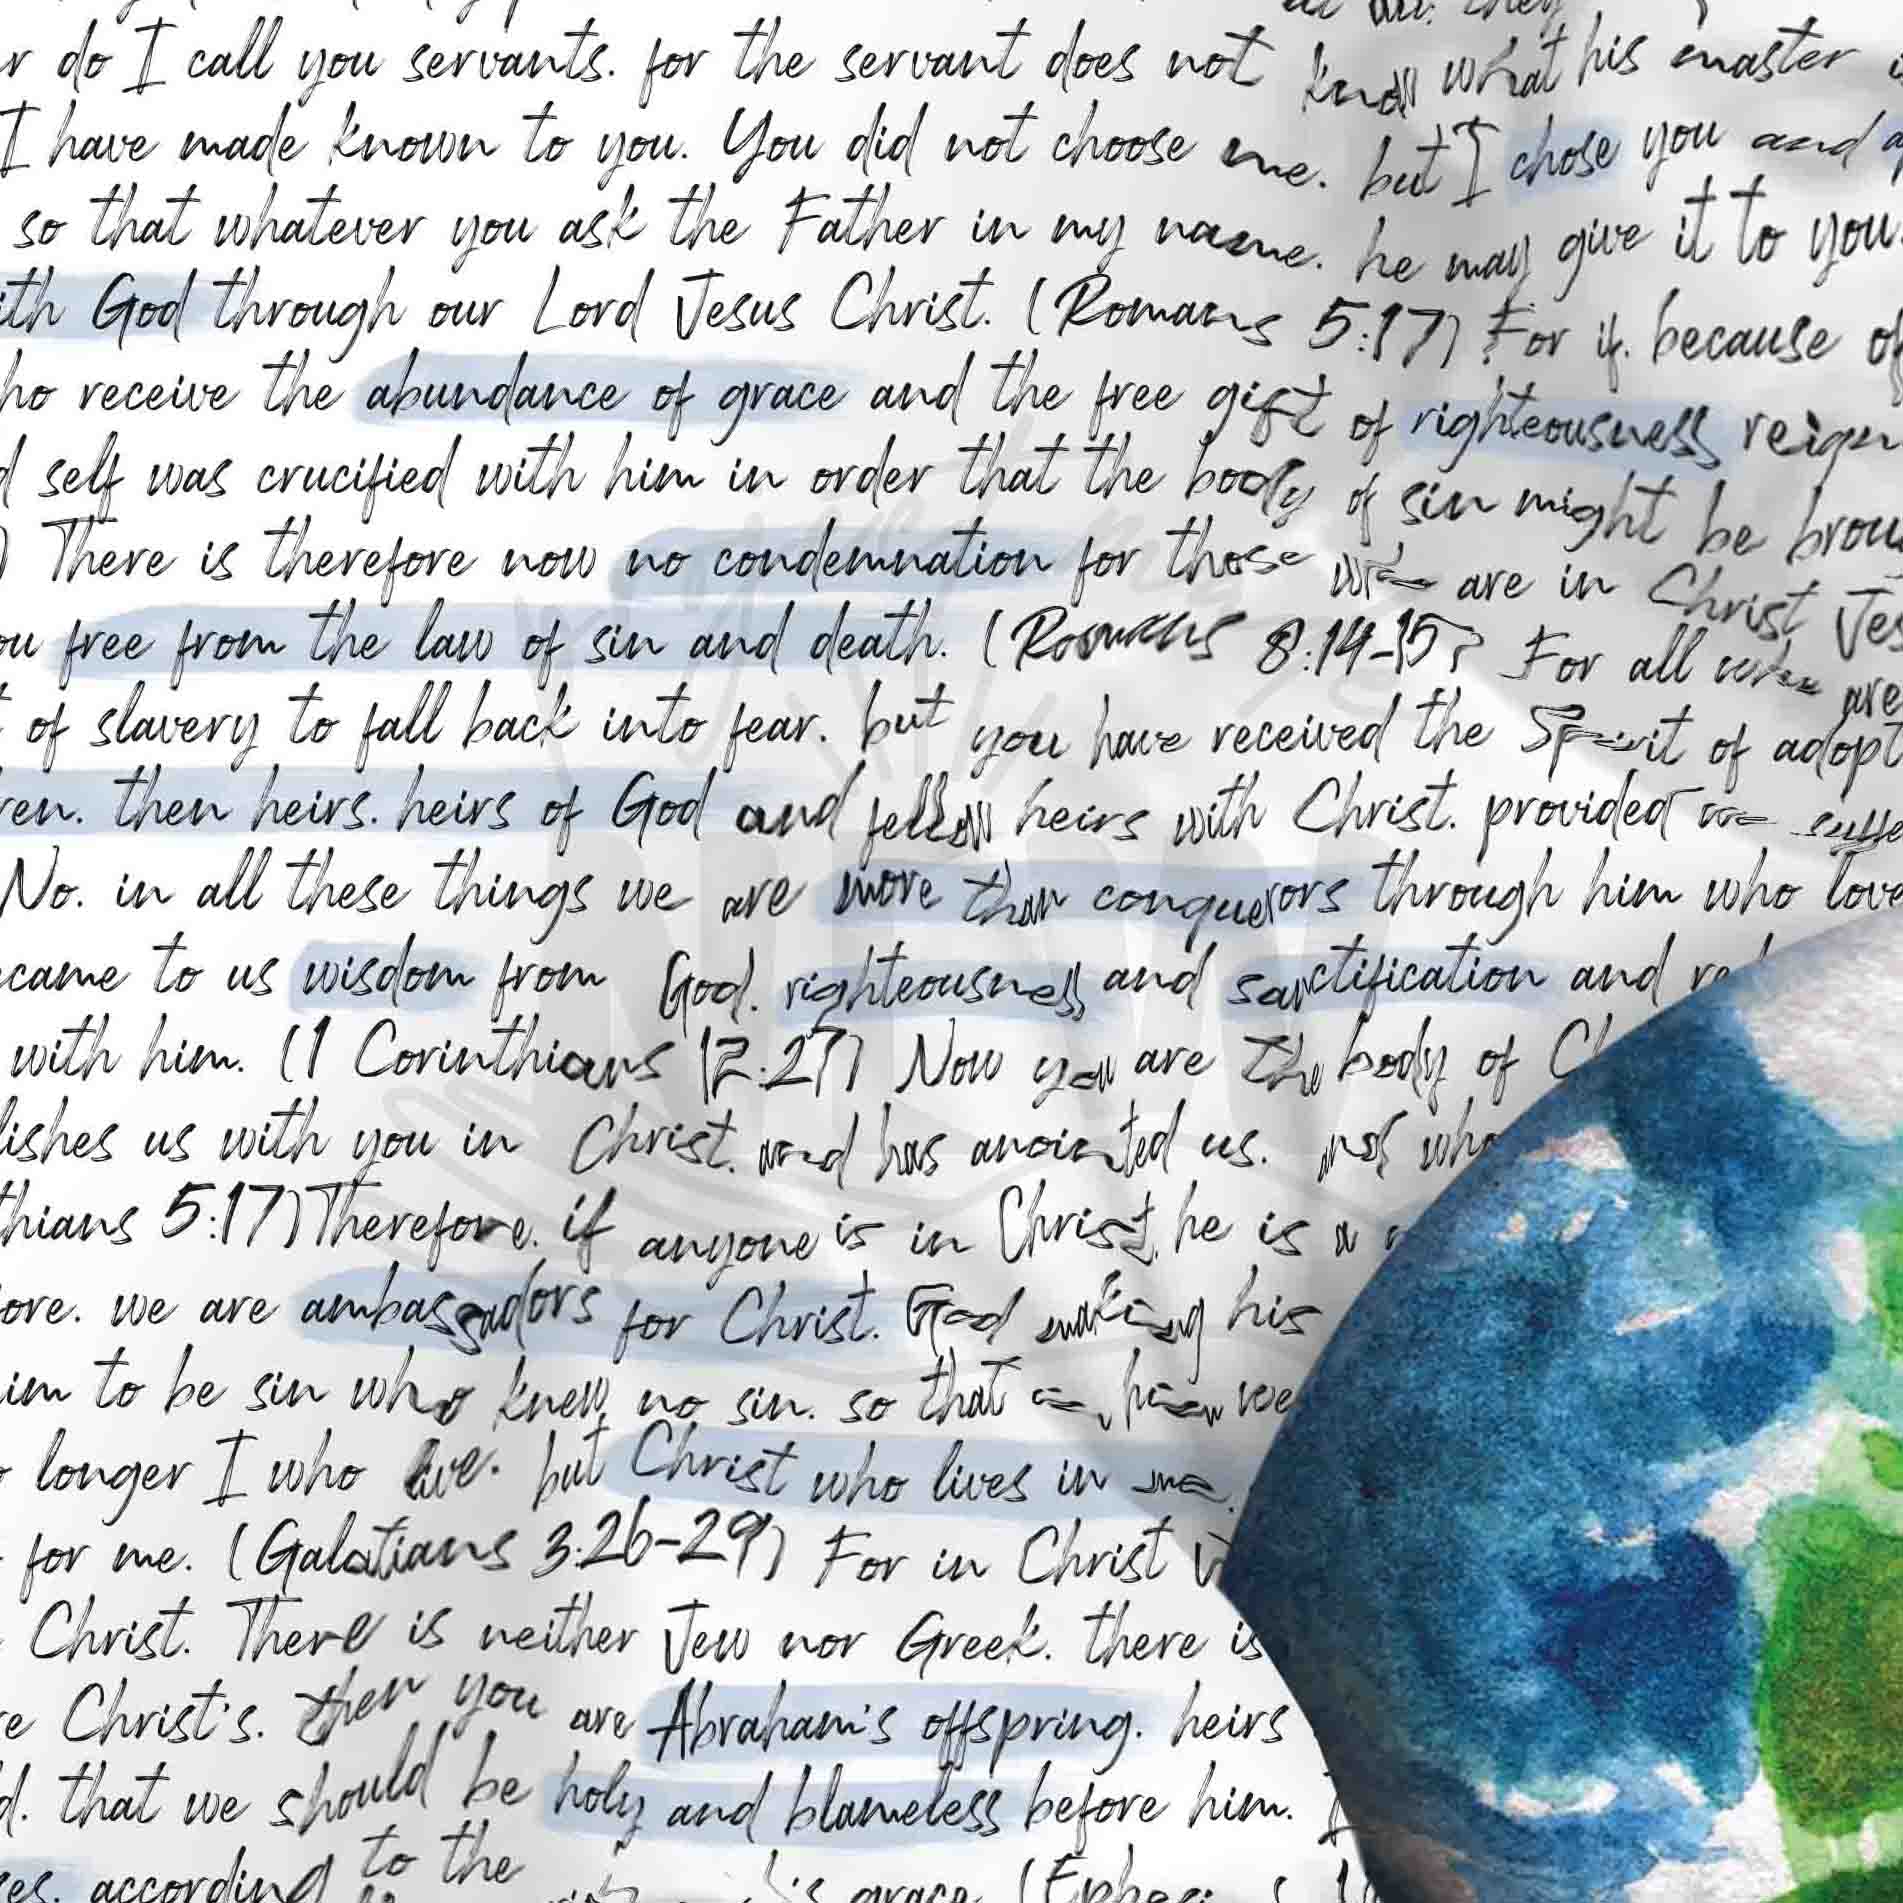 they
r do I call you servants. for the servant does not know what his master
I have made known to you. You did not choose me. but I chose you and
so that whatever you ask the Father in my name. he may give it to you.
ith God through our Lord Jesus Christ. (Romans 5:17) For if. because of
ho receive the abundance of grace and the free gift of righteousness reign
d self was crucified with him in order that the body of sin might be brou
) There is therefore now no condemnation for those who are in Christ Jes
ou free from the law of sin and death. (Romans 8:14-15) For all who are
t of slavery to fall back into fear. but you have received the Spirit of adopt
ren. then heirs. heirs of God and fellow heirs with Christ. provided we suffe
No. in all these things we are more than conquerors through him who love
ecame to us wisdom from God. righteousness and sanctification and
with him. (1 Corinthians 12:27) Now you are the body of C
lishes us with you in Christ. and has anointed us. and who
thians 5:17) Therefore. if anyone is in Christ. he is a
ore. we are ambassadors for Christ. God making his
im to be sin who knew no sin. so that in him we
o longer I who live. but Christ who lives in me.
for me. (Galatians 3:26-29) For in Christ
Christ. There is neither Jew nor Greek. there is
re Christ's. then you are Abraham's offspring. heirs
d. that we should be holy and blameless before him.
ses. according to the grace. (Ephesi